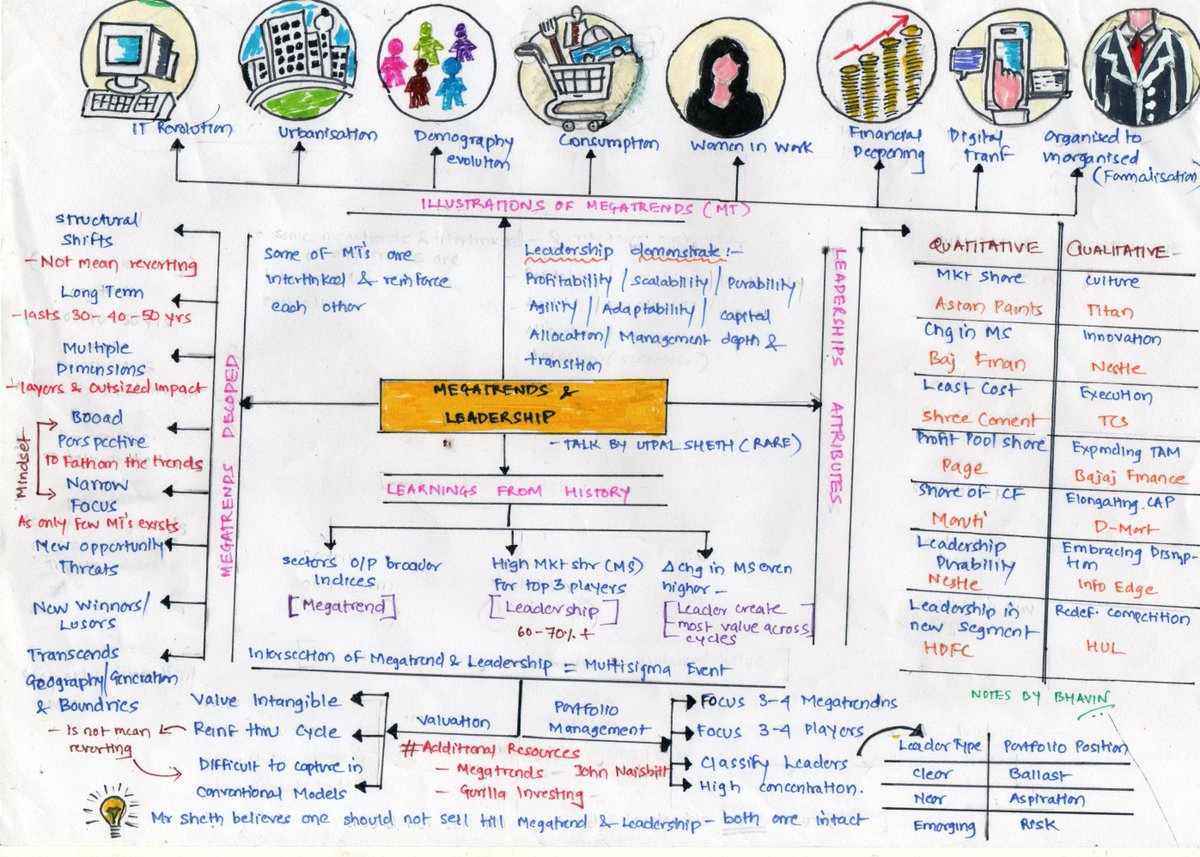 IT Revolution
Urbanisation
Demography
evolution
Consumption
Women in Work
Financial
Deepening
Digital
Tranf
Organised to
Unorganised
(Formalisation)
ILLUSTRATIONS OF MEGATRENDS (MT)
Structural
Shifts
- Not mean reverting
Long Term
- lasts 30-40-50 yrs
Multiple
Dimensions
- layers & Outsized impact
Mindset
Broad
Perspective
To Fathom the trends
Narrow
Focus
As only few MT's exists
New opportunity
Threats
New Winners/
Losers
Transcends
Geography/Generation
& Boundries
MEGATRENDS DECODED
Some of MT's are
interlinked & reinforce
each other
Leadership demonstrate :-
Profitability / Scalability / Durability
Agility / Adaptability / capital
Allocation / Management depth &
transition
MEGATRENDS &
LEADERSHIP
- TALK BY UTPAL SHETH (RARE)
LEARNINGS FROM HISTORY
Sectors O/P broader
Indices
[Megatrend]
High Mkt shr (MS)
For top 3 players
[Leadership]
60-70% +
Δ chg in MS even
higher -
[Leader create
most value across
cycles]
Intersection of Megatrend & Leadership = Multisigma Event
LEADERSHIPS ATTRIBUTES
QUANTITATIVE
QUALITATIVE
Mkt share
culture
Asian Paints
Titan
Chg in MS
Innovation
Baj Finan
Nestle
Least Cost
Execution
Shree Cement
TCS
Profit Pool share
Expanding TAM
Page
Bajaj Finance
Share of CF
Elongating CAP
Maruti
D-Mart
Leadership
Durability
Embracing Disrup-
tion
Nestle
Info Edge
Leadership in
new segment
Redef. Competition
HDFC
HUL
NOTES BY BHAVIN
Valuation
Value Intangible
Reinf thru Cycle
- Is not mean
reverting
Difficult to capture in
Conventional Models
# Additional Resources
- Megatrends - John Naisbitt
- Gorilla Investing
Portfolio
Management
Focus 3-4 Megatrendns
Focus 3-4 Players
Classify Leaders
High concentration.
Leader Type
Portfolio Position
Clear
Ballast
Near
Aspiration
Emerging
Risk
Mr Sheth believes one should not sell till Megatrend & Leadership - both are intact